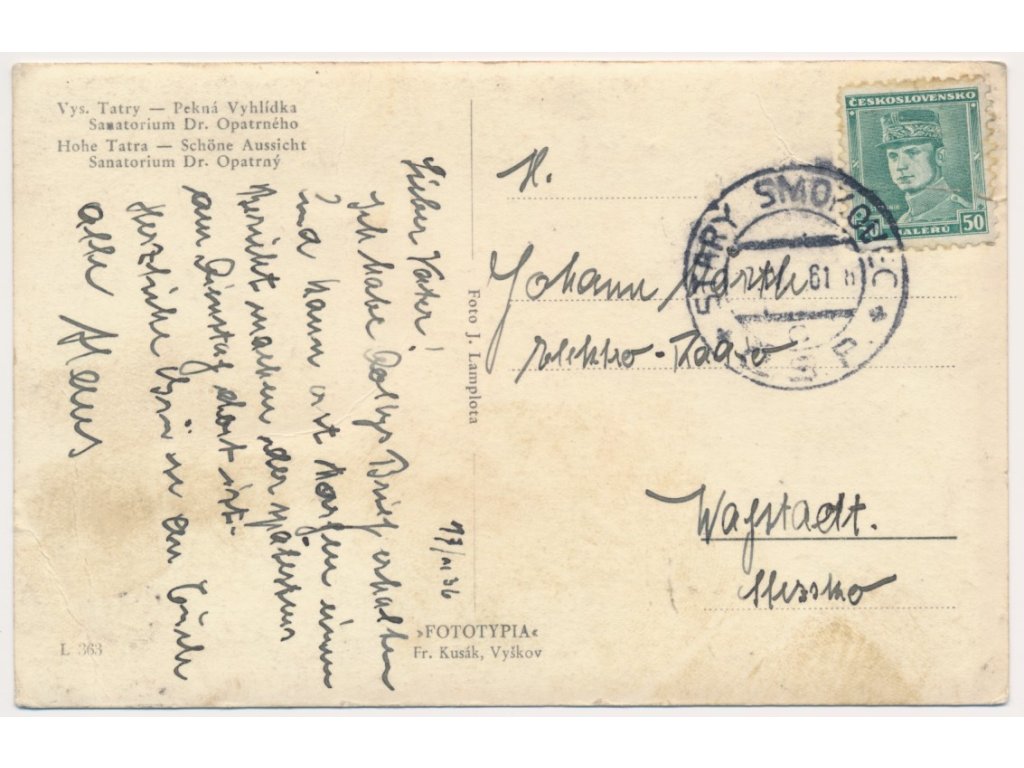 Vys. Tatry — Pekná Vyhlídka
Sanatorium Dr. Opatrného
Hohe Tatra — Schöne Aussicht
Sanatorium Dr. Opatrný
17/VI 36
Lieber Vater!
Ich habe Dollys Brief erhalten
und kann erst Morgen einen
Bericht machen der spätestens
am Dienstag dort ist.
Herzliche Grüße an Euch
alle Hans
Foto J. Lamplota
»FOTOTYPIA«
Fr. Kusák, Vyškov
L 363
ČESKOSLOVENSKO
50
HALÉŘŮ
STARÝ SMOKOVEC
H.
Johann
Elektro-Radio
Wagstadt.
Slezsko